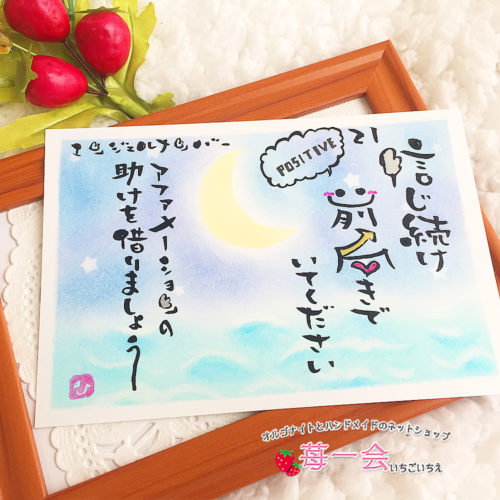 エンジェルナンバー
21
POSITIVE
信じ続け
前向きで
いてください
アファメーションの
助けを借りましょう
オルゴナイトとハンドメイドのネットショップ
苺一会 いちごいちえ